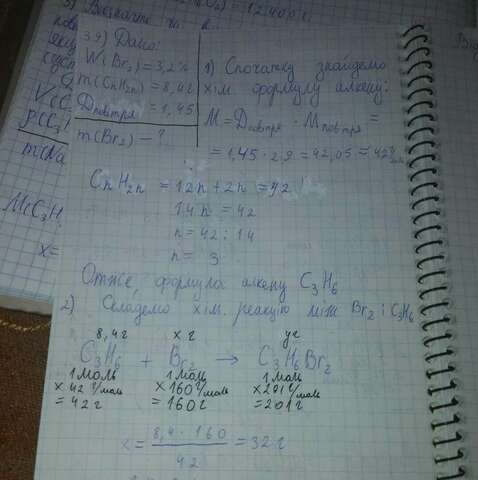 3) Визначте
39) Дано:
W(Br₂) = 3,2%
m(CnH2n) = 8,4г
Dповітря = 1,45
m(Br₂) — ?
1) Спочатку знайдемо
хім. формулу алкену:
M = Dповітря · Mповітря =
= 1,45 · 29 = 42,05 = 42
CnH2n = 12n + 2n = 42
14n = 42
n = 42 : 14
n = 3
Отже, формула алкену C₃H₆
2) Складемо хім. реакцію між Br₂ і C₃H₆
8,4г xг yг
C₃H₆ + Br₂ → C₃H₆Br₂
1моль 1моль 1моль
x 42 г/моль x 160 г/моль x 201 г/моль
= 42г = 160г = 201г
x = 8,4 · 160 / 42 = 32г